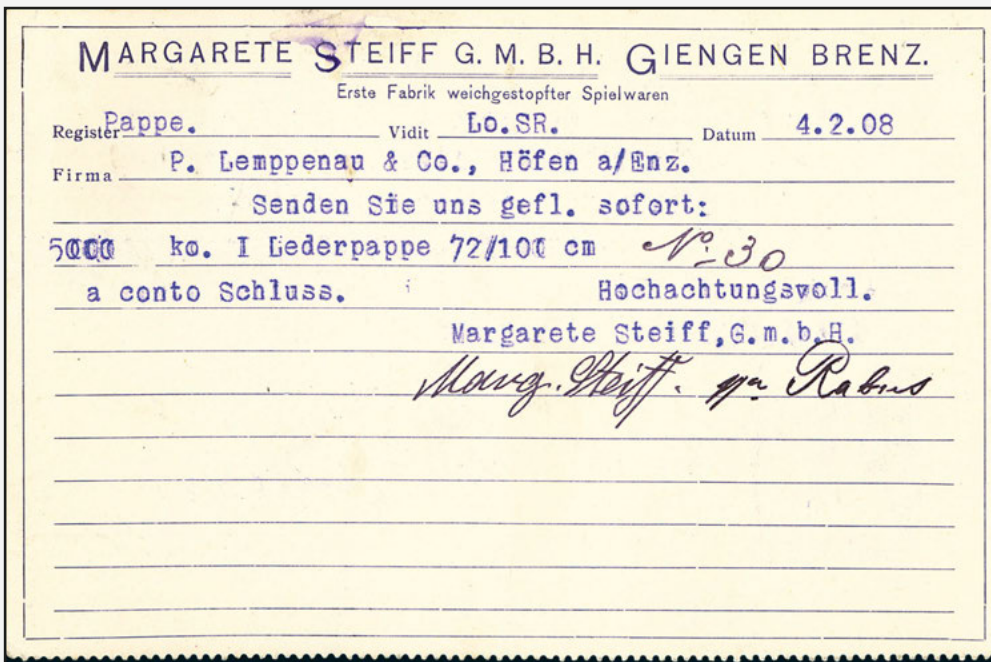 MARGARETE STEIFF G. M. B. H. GIENGEN BRENZ.
Erste Fabrik weichgestopfter Spielwaren
Register Pappe. Vidit Lo.SR. Datum 4.2.08
Firma P. Lemppenau & Co., Höfen a/Enz.
Senden Sie uns gefl. sofort:
5000 ko. I Lederpappe 72/100 cm No. 30
a conto Schluss. Hochachtungsvoll.
Margarete Steiff,G.m.b.H.
Marg. Steiff. ppa Rabus